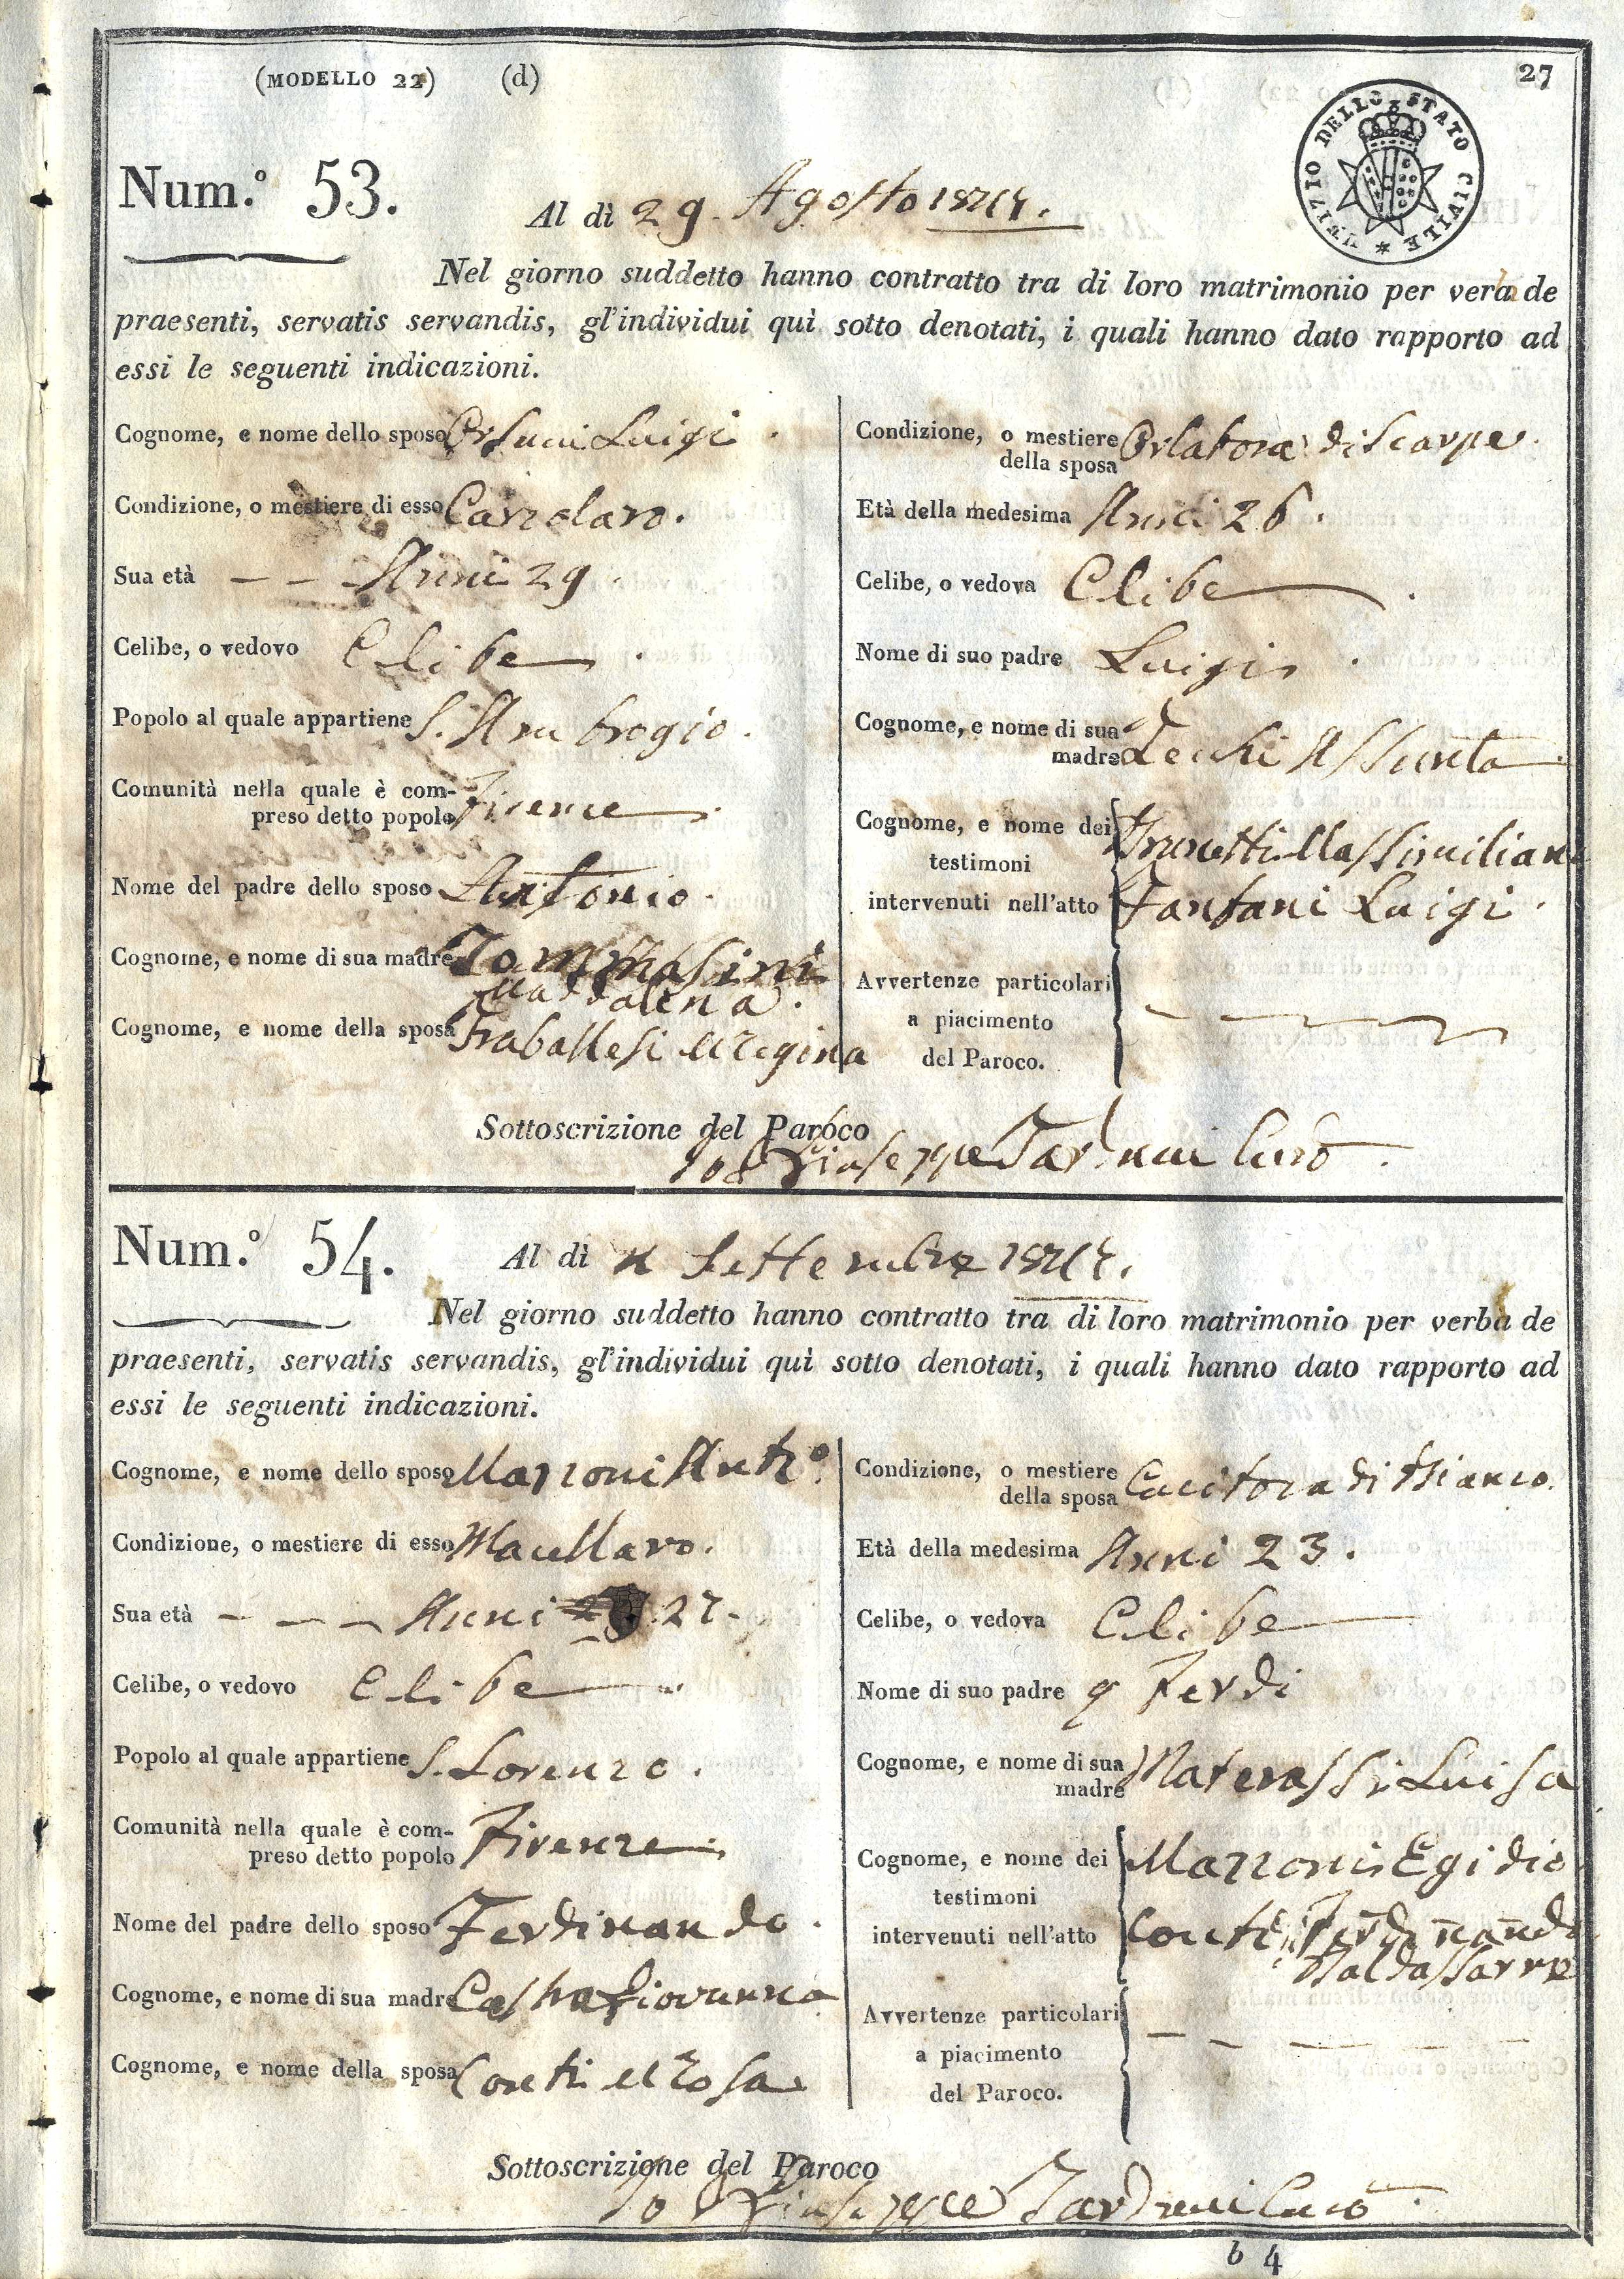 (MODELLO 22) (d)
27
UFIZIO DELLO STATO CIVILE
Num.º 53.
Al dì 29. Agosto
Nel giorno suddetto hanno contratto tra di loro matrimonio per verba de
praesenti, servatis servandis, gl'individui quì sotto denotati, i quali hanno dato rapporto ad
essi le seguenti indicazioni.
Cognome, e nome dello sposo Orsucci Luigi
Condizione, o mestiere di esso Calzolaro.
Sua età Anni 29
Celibe, o vedovo Clibe
Popolo al quale appartiene S. Ambrogio.
Comunità nella quale è com-
preso detto popolo Firenze
Nome del padre dello sposo Antonio.
Cognome, e nome di sua madre Tommasini
Maddalena.
Cognome, e nome della sposa Traballesi Regina
Condizione, o mestiere
della sposa Orlatora di Scarpe.
Età della medesima Anni 26.
Celibe, o vedova Clibe
Nome di suo padre Luigi
Cognome, e nome di sua
madre Assunta
Cognome, e nome dei
testimoni Massimiliano
intervenuti nell'atto Fanfani Luigi.
Avvertenze particolari
a piacimento
del Paroco.
Sottoscrizione del Paroco
Io Giuseppe Tarducci Curo
Num.º 54.
Al dì Settembre
Nel giorno suddetto hanno contratto tra di loro matrimonio per verba de
praesenti, servatis servandis, gl'individui quì sotto denotati, i quali hanno dato rapporto ad
essi le seguenti indicazioni.
Cognome, e nome dello sposo Mazzoni Antº.
Condizione, o mestiere di esso Macellaro.
Sua età Anni 27.
Celibe, o vedovo Clibe
Popolo al quale appartiene S. Lorenzo.
Comunità nella quale è com-
preso detto popolo Firenze
Nome del padre dello sposo Ferdinando.
Cognome, e nome di sua madre Giovanna
Cognome, e nome della sposa Conti Rosa
Condizione, o mestiere
della sposa Cucitora di Bianco.
Età della medesima Anni 23.
Celibe, o vedova Clibe
Nome di suo padre q Ferdi
Cognome, e nome di sua
madre Materassi Luisa
Cognome, e nome dei Mazzoni Egidio
testimoni
intervenuti nell'atto Conti Ferdinando
Baldassarre
Avvertenze particolari
a piacimento
del Paroco.
Sottoscrizione del Paroco
Io Giuseppe Tarducci Curo
b 4